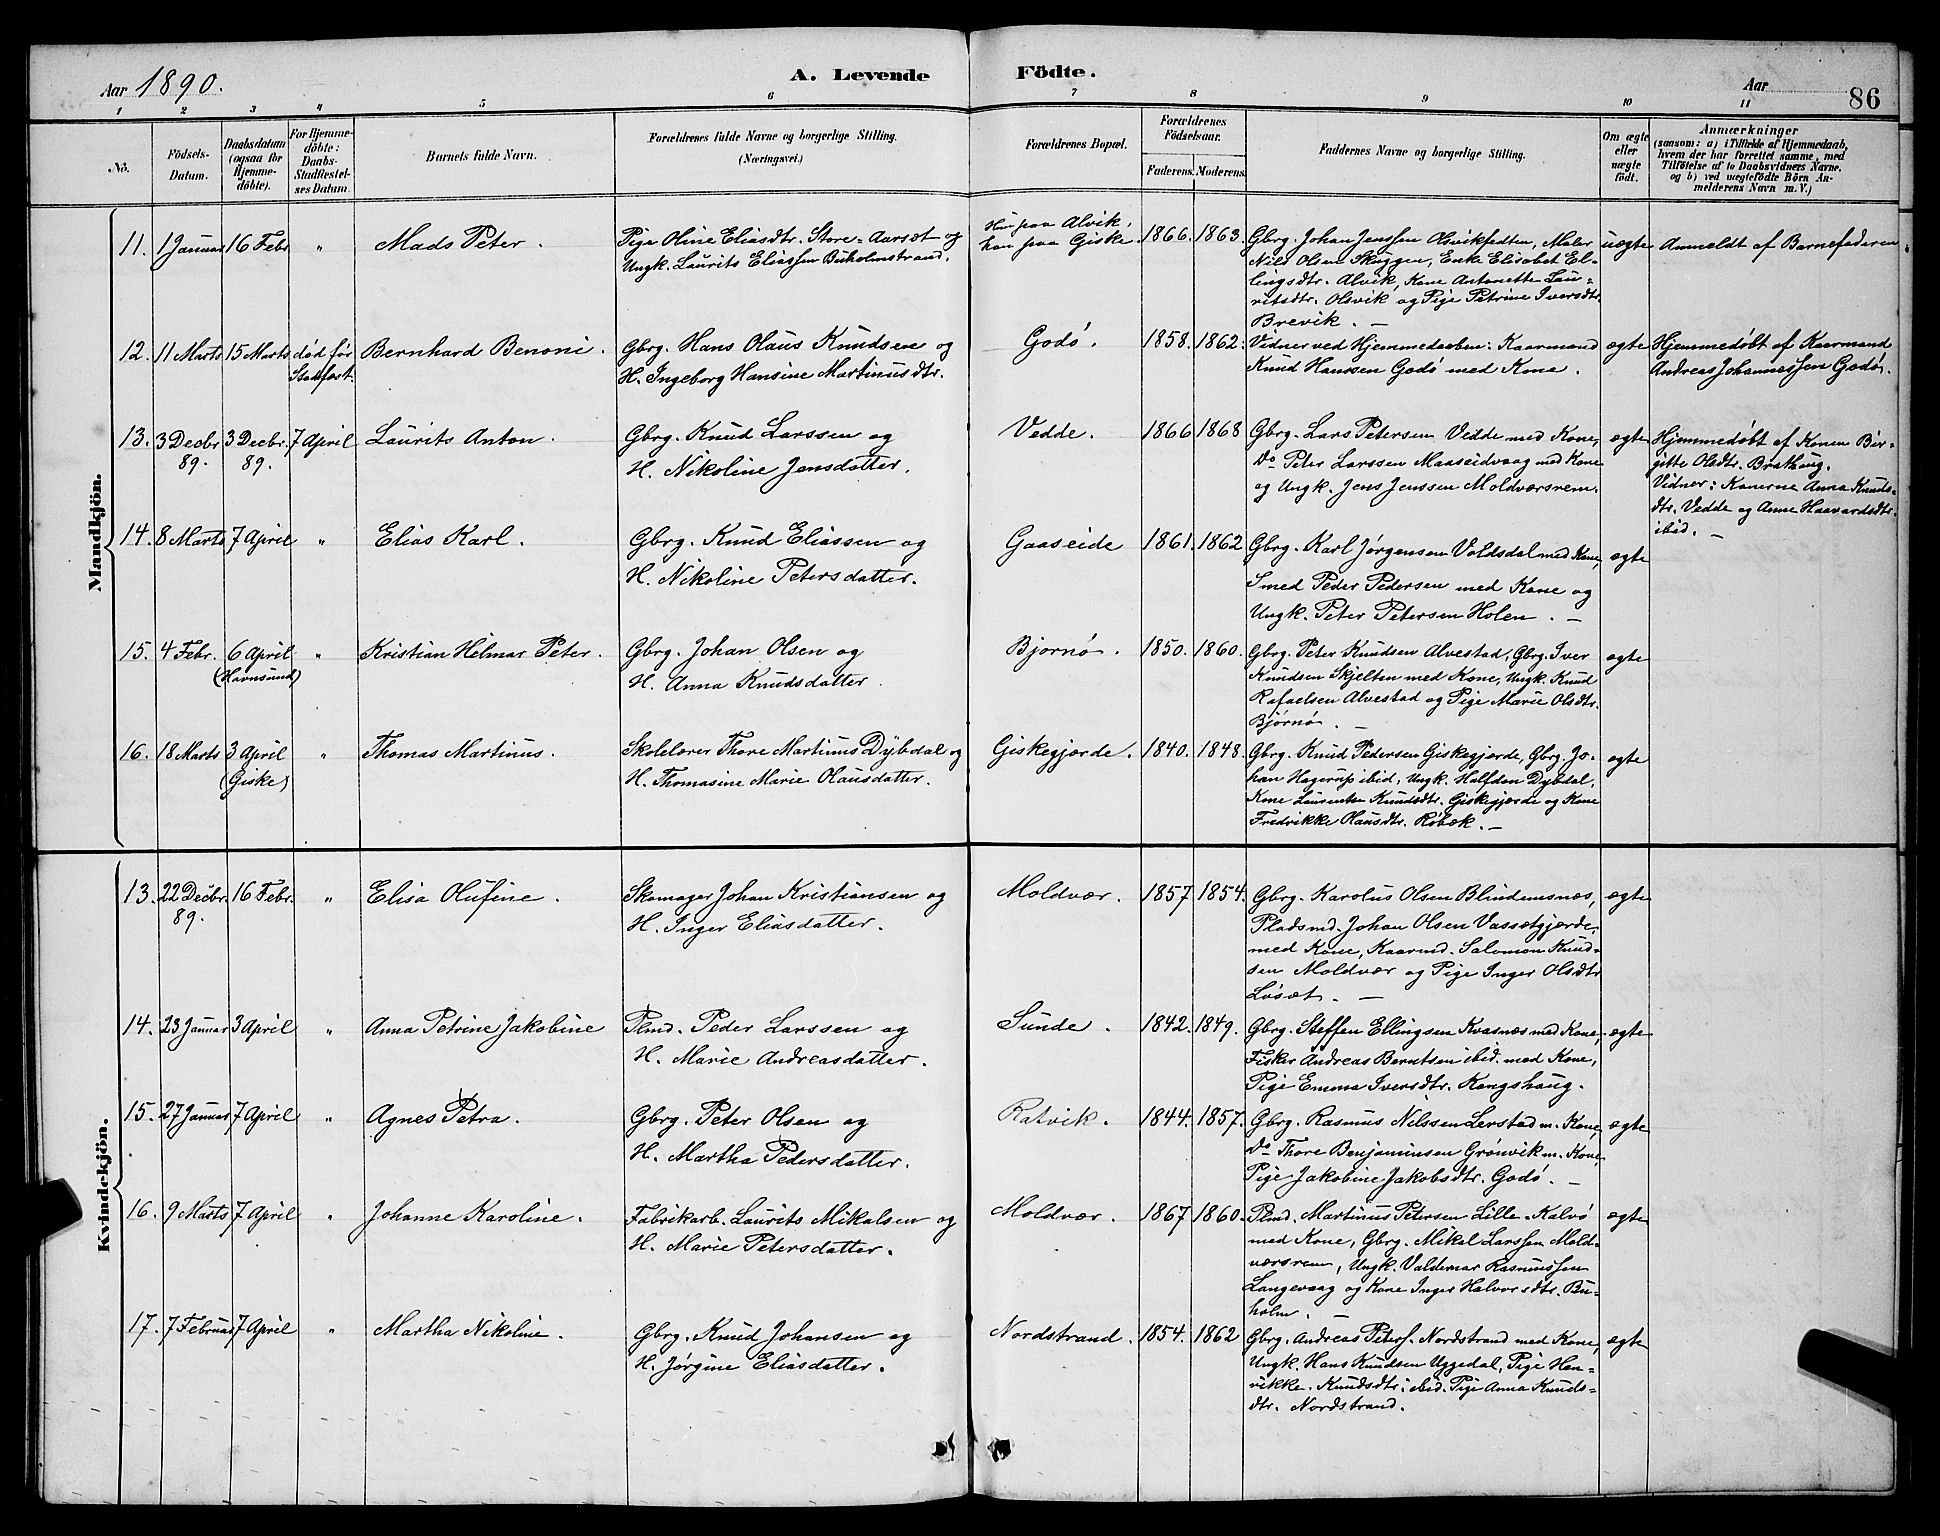 Aar 1890.
A. Levende Födte.
Aar
86
1 2 3 4 5 6 7 8 9 10 11
No.
Födsels-
Datum.
Daabsdatum
(ogsaa for
Hjemme-
döbte).
For Hjemme-
döbte:
Daabs-
Stadfæstel-
ses Datum.
Barnets fulde Navn.
Forældrenes fulde Navne og borgerlige Stilling.
(Næringsvei.)
Forældrenes Bopæl.
Forældrenes
Födselsaar.
Faderens. Moderens.
Faddernes Navne og borgerlige Stilling.
Om ægte
eller
uægte
födt.
Anmærkninger
(saasom: a) i Tilfælde af Hjemmedaab,
hvem der har forrettet samme, med
Tilföielse af to Daabsvidners Navne,
og b) ved uægtefödte Börn An-
melderens Navn m. V.)
Mandkjön.
11. 1 Januar 16 Febr. " Mads Peter.
Pige Oline Eliasdtr. Store-Aarsæt og
Ungk. Laurits Eliassen Buholmstrand.
Hun paa Alvik,
han paa Giske.
1866. 1863.
Gbrg. Johan Jenssen Olsvikfedten, Maler
Nils Olsen Skuggen, Enke Elisabet El-
lingsdtr. Alvik, Kone Antonette Lau-
ritsdtr. Olsvik og Pige Petrine Iversdtr.
Brevik. —
uægte
Anmeldt af Barnefaderen
12. 11 Marts 15 Marts død før
Stadfæst. Bernhard Benoni.
Gbrg. Hans Olaus Knudsen og
H. Ingeborg Hansine Martinusdtr.
Godø. 1858. 1862.
Vidner ved Hjemmedaaben: Kaarmand
Knud Hanssen Godø med Kone.
ægte
Hjemmedøbt af Kaarmand
Andreas Johannessen Godø.
13. 3 Decbr. 3 Decbr. 7 April Laurits Anton.
89. 89.
Gbrg. Knud Larssen og
H. Nikoline Jensdatter.
Vedde. 1866 1868
Gbrg. Lars Petersen Vedde med Kone,
Do Peter Larssen Maaseidvaag med Kone
og Ungk. Jens Jenssen Moldværsrem.
ægte
Hjemmedøbt af Konen Bir-
gitte Olsdtr. Brathaug.
Vidner: Konerne Anna Knuds-
dtr. Vedde og Anne Haavardsdtr.
ibid. —
14. 8 Marts 7 April " Elias Karl.
Gbrg. Knud Eliassen og
H. Nikoline Petersdatter.
Gaaseide 1861. 1862
Gbrg. Karl Jørgensen Voldsdal med Kone,
Smed Peder Pedersen med Kone og
Ungk. Peter Petersen Holen. —
ægte
15. 4 Febr. 6 April " Kristian Hilmar Peter.
(Havnsund)
Gbrg. Johan Olsen og
H. Anna Knudsdatter.
Bjørnø. 1850. 1860.
Gbrg. Peter Knudsen Alvestad, Gbrg. Iver
Knudsen Skjelten med Kone, Ungk. Knud
Rafaelsen Alvestad og Pige Marie Olsdtr.
Bjørnø. —
ægte
16. 18 Marts 3 April " Thomas Martinus.
(Giske)
Skolelærer Thore Martinus Dybdal og
H. Thomasine Marie Olausdatter.
Giskegjærde. 1840. 1848.
Gbrg. Knud Pedersen Giskegjærde, Gbrg. Jo-
han Hagerup ibid, Ungk. Halfdan Dybdal,
Kone Laurentse Knudsdtr. Giskegjærde og Kone
Fredrikke Olausdtr. Røbæk. —
ægte
Kvindekjön.
13. 22 Decbr. 16 Febr. " Elisa Olufine.
89.
Skomager Johan Kristiansen og
H. Inger Eliasdatter.
Moldvær. 1857 1854.
Gbrg. Karolus Olsen Blindemsnæs,
Pladsmd. Johan Olsen Vassetgjærde,
med Kone, Kaarmd. Salomon Knud-
sen Moldvær og Pige Inger Olsdtr.
Løsæt. —
ægte
14. 23 Januar 3 April " Anna Petrine Jakobine
Plmd. Peder Larssen og
H. Marie Andreasdatter.
Sunde. 1842. 1849.
Gbrg. Steffen Ellingsen Kvasnæs med Kone,
Fisker Andreas Berntsen ibid. med Kone,
Pige Emma Iversdtr. Kongshaug.
ægte
15. 27 Januar 7 April " Agnes Petra.
Gbrg. Peter Olsen og
H. Martha Pedersdatter.
Ratvik. 1844. 1857.
Gbrg. Rasmus Nilssen Lerstad m. Kone,
Do Thore Benjaminsen Grønvik m. Kone,
Pige Jakobine Jakobsdtr. Godø. —
ægte
16. 9 Marts 7 April " Johanne Karoline.
Fabrikarb. Laurits Mikalsen og
H. Marie Petersdatter.
Moldvær. 1867 1860.
Plmd. Martinus Petersen Lille-Kalvø
med Kone, Gbrg. Mikal Larssen Mold-
værsrem, Ungk. Valdemar Rasmussen
Langevaag og Kone Inger Halvorsdtr. Bu-
holm. —
ægte
17. 7 Februar 7 April " Martha Nikoline.
Gbrg. Knud Johansen og
H. Jørgine Eliasdatter.
Nordstrand. 1854. 1862
Gbrg. Andreas Peters. Nordstrand med Kone,
Ungk. Hans Knudsen Uggedal, Pige Hen-
rikke Knudsdtr. ibid. Pige Anna Knuds-
dtr. Nordstrand.
ægte